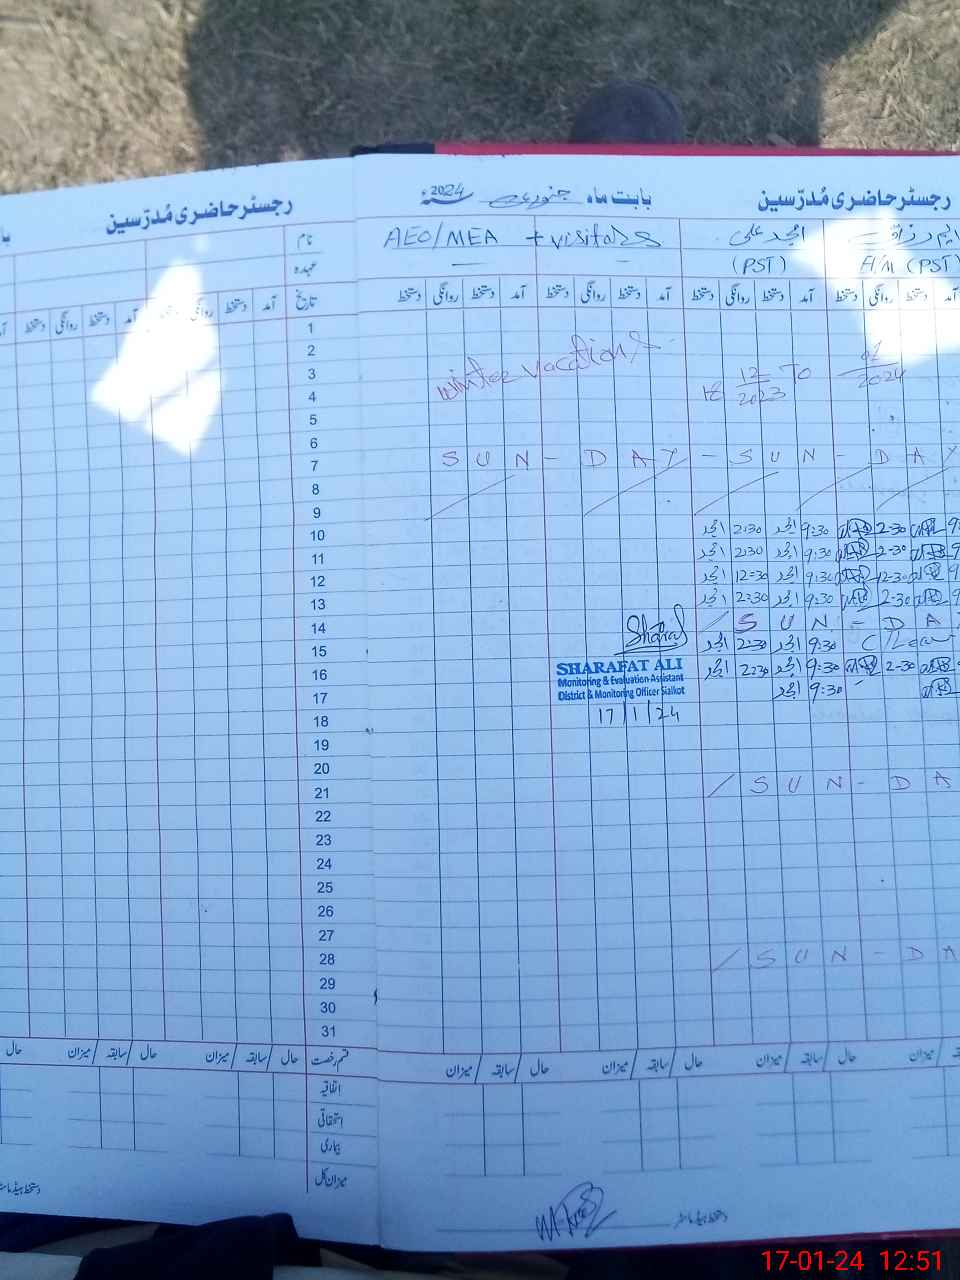 رجسٹر حاضری مُدرّسین
بابت ماہ جنوری 2024
رجسٹر حاضری مُدرّسین
امجد علی
AEO/MEA + visitors
نام
H/M (PST)
(PST)
عہدہ
آمد دستخط روانگی دستخط آمد دستخط روانگی دستخط آمد دستخط روانگی دستخط
تاریخ آمد دستخط روانگی دستخط آمد دستخط روانگی دستخط
1
2
winter vacations
3
18 12/2023 To 01/2024
4
5
6
7
SUN - DAY - SUN - DAY
8
9
10
2-30 9:30 امجد 2:30 امجد
11
2-30 9:30 امجد 2:30 امجد
12
12-30 9:30 امجد 12:30 امجد
13
2-30 9:30 امجد 2:30 امجد
14
/ SUN - DA
15
C/Leave 9:30 امجد 2:30 امجد
Sharaf
16
2-30 9:30 امجد 2:30 امجد
SHARAFAT ALI
Monitoring & Evaluation Assistant
District & Monitoring Officer Sialkot
17
9:30 امجد
17/1/24
18
19
20
21
/ SUN - DA
22
23
24
25
26
27
28
/ SUN - DA
29
30
31
حال / سابقہ / میزان حال / سابقہ / میزان حال / سابقہ / میزان
قسم رخصت حال / سابقہ / میزان حال / سابقہ / میزان حال
اتفاقیہ
استحقاقی
بیماری
میزان کل
دستخط ہیڈ ماسٹر
دستخط ہیڈ ماسٹر
17-01-24 12:51